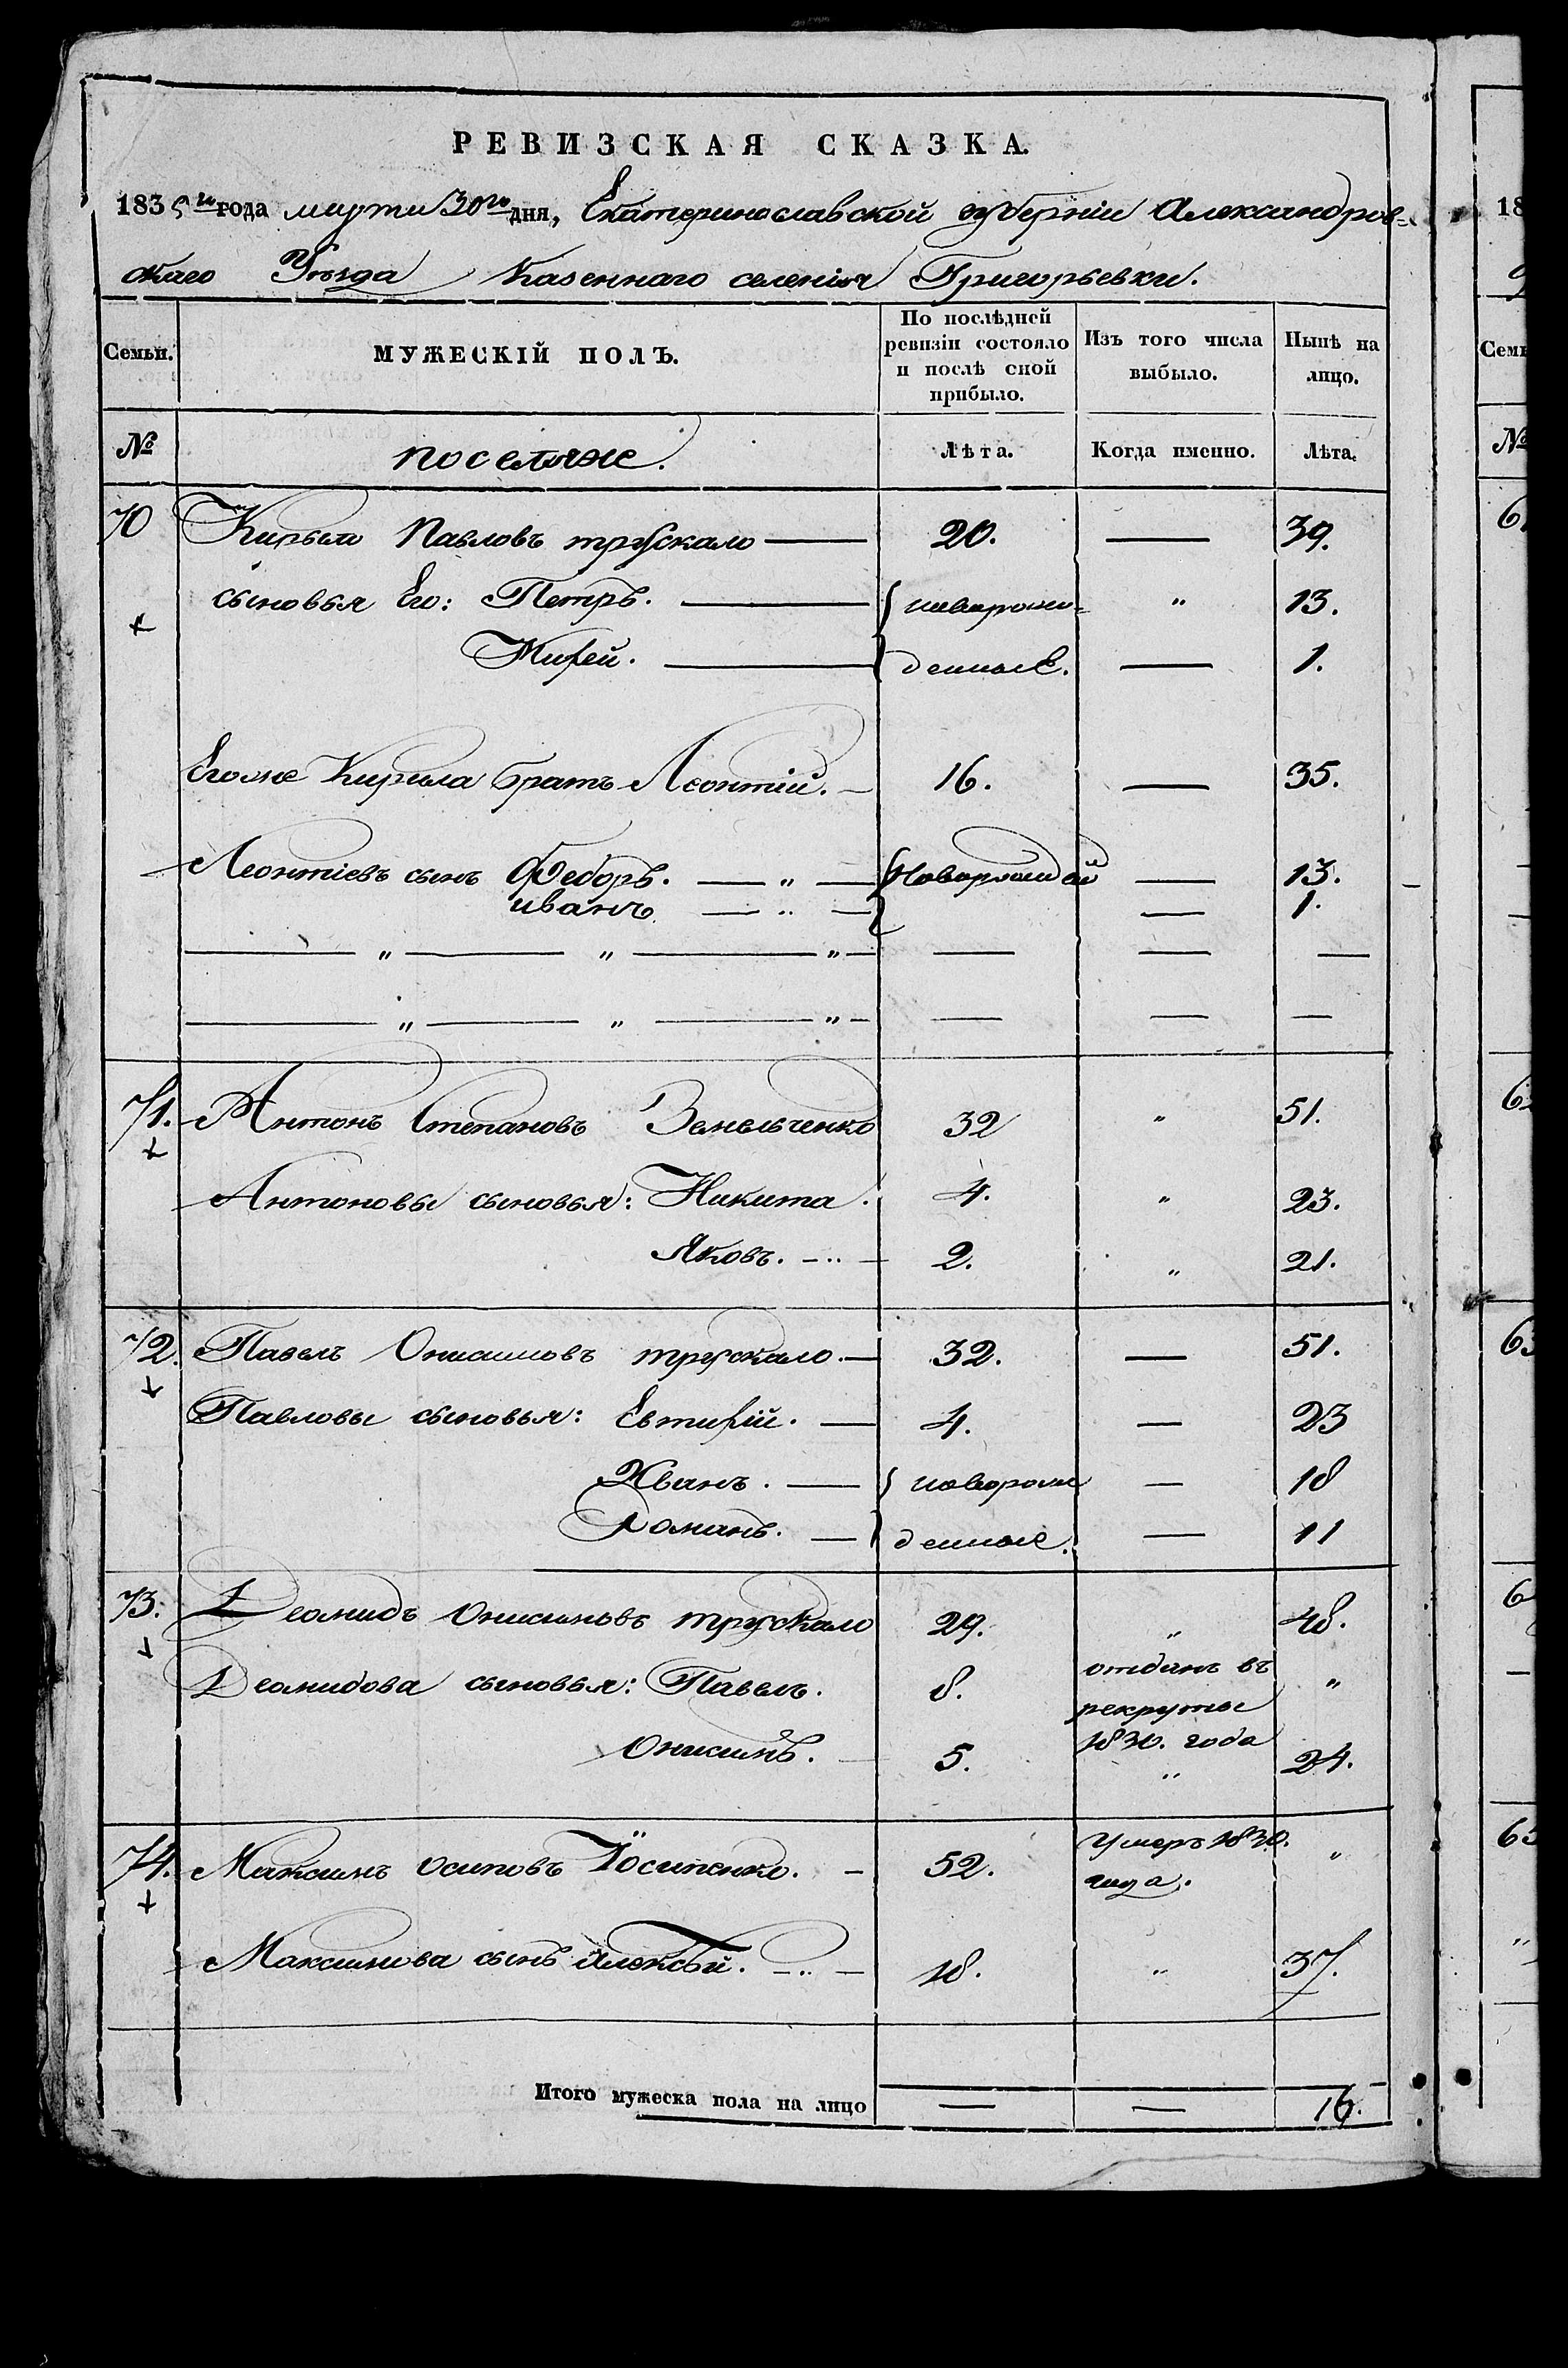 РЕВИЗСКАЯ СКАЗКА.
1835го года марта 30го дня, Екатеринославской губернiи Александров=
скаго Уѣзда Казеннаго селенiя Григорьевки.
Семьи. МУЖЕСКІЙ ПОЛЪ. По послѣдней ревизіи состояло и послѣ оной прибыло. Изъ того числа выбыло. Нынѣ на лицо.
№ поселяне. Лѣта. Когда именно. Лѣта.
70 Кирило Павловъ трускало — 20. — 39.
сыновья Его: Петръ. — новорож= " 13.
Тифей. — денные. — 1.
Егоже Кирила братъ Леонтiй. — 16. — 35.
Леонтiевъ сынъ Федоръ. — " — Новорожд ый — 13.
иванъ — " — — 1.
71. Антонъ Степановъ Земельченко 32 " 51.
Антоновы сыновья: Никита. 4. " 23.
Яковъ. — " — 2. " 21.
72. Павелъ Онисимовъ трускало. — 32. — 51.
Павловы сыновья: Евтифiй. — 4. — 23
Иванъ. — новорож — 18
Романъ. — денные. — 11
73. Деомидъ Онисимовъ трускало 29. " 48.
Деомидова сыновья: Павелъ. 8. отданъ въ рекруты 1830. года "
Онисимъ. 5. " 24.
74. Максимъ Осиповъ Iосипенко. — 52. Умеръ 1830. года. "
Максимова сынъ Алексѣй. — " — 18. " 37.
Итого мужеска пола на лицо — — 16.
18
Семь
№
61
62
63
64
65